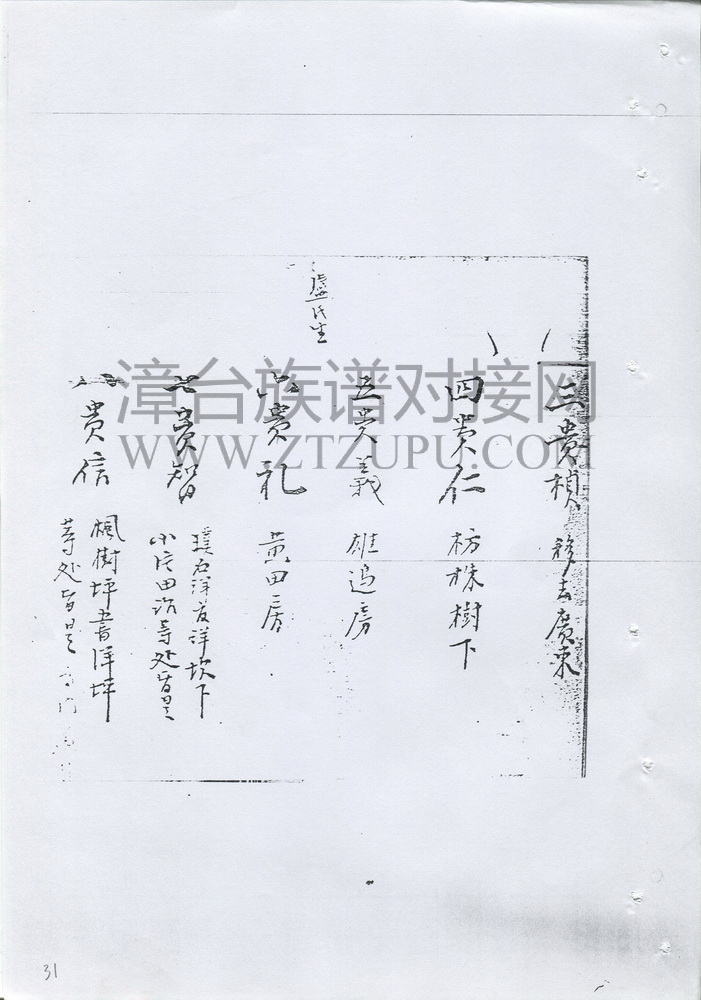 三貴楨 移去廣東
四貴仁 枋株樹下
盧氏生
五貴義 雄過房
六貴礼 黄田房
七貴智
下洋坎下
小
田
等处皆是
八貴信
楓樹坪書洋坪
等处皆是
漳台族谱对接网
WWW.ZTZUPU.COM
31